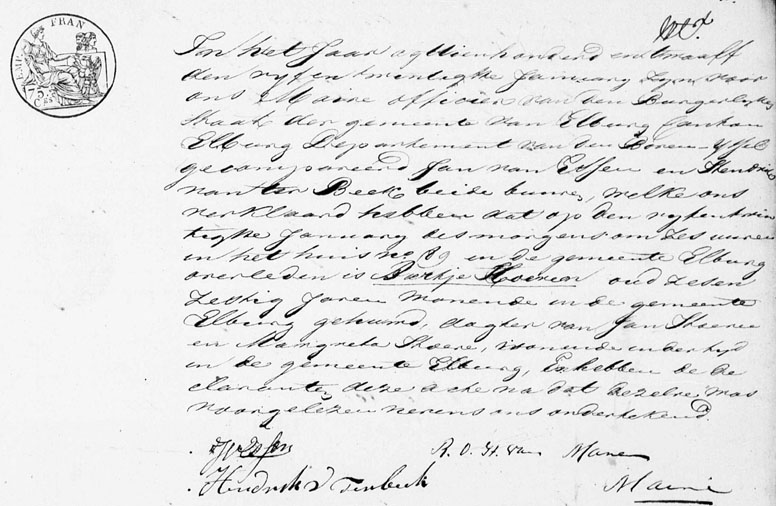 TIMB. FRAN
75 Ces
No. 7.
In het Jaar agttienhonderd en twaalf
den vyf en twintigste January zyn voor
ons Maire officier van den Burgerlyke
staat der gemeente van Elburg Canton
Elburg Departement van den Boven-Yssel
gecompareerd Jan van Essen en Hendrik
van ter Beek beide buuren, welke ons
verklaard hebben dat op den vyfentwin
tigste January des morgens om zes uuren
in het huis no 89 in de gemeente Elburg
overleden is Bartje oud zesen
zestig Jaren wonende in de gemeente
Elburg gehuwd, dogter van Jan
en Margreta wonende in der tyd
in de gemeente Elburg, En hebben de de
claranten deze acte na dat dezelve was
voorgelezen nevens ons ondertekend.
J v Essen R. O. H. van Mane
Hendrik v Terbeek Maire